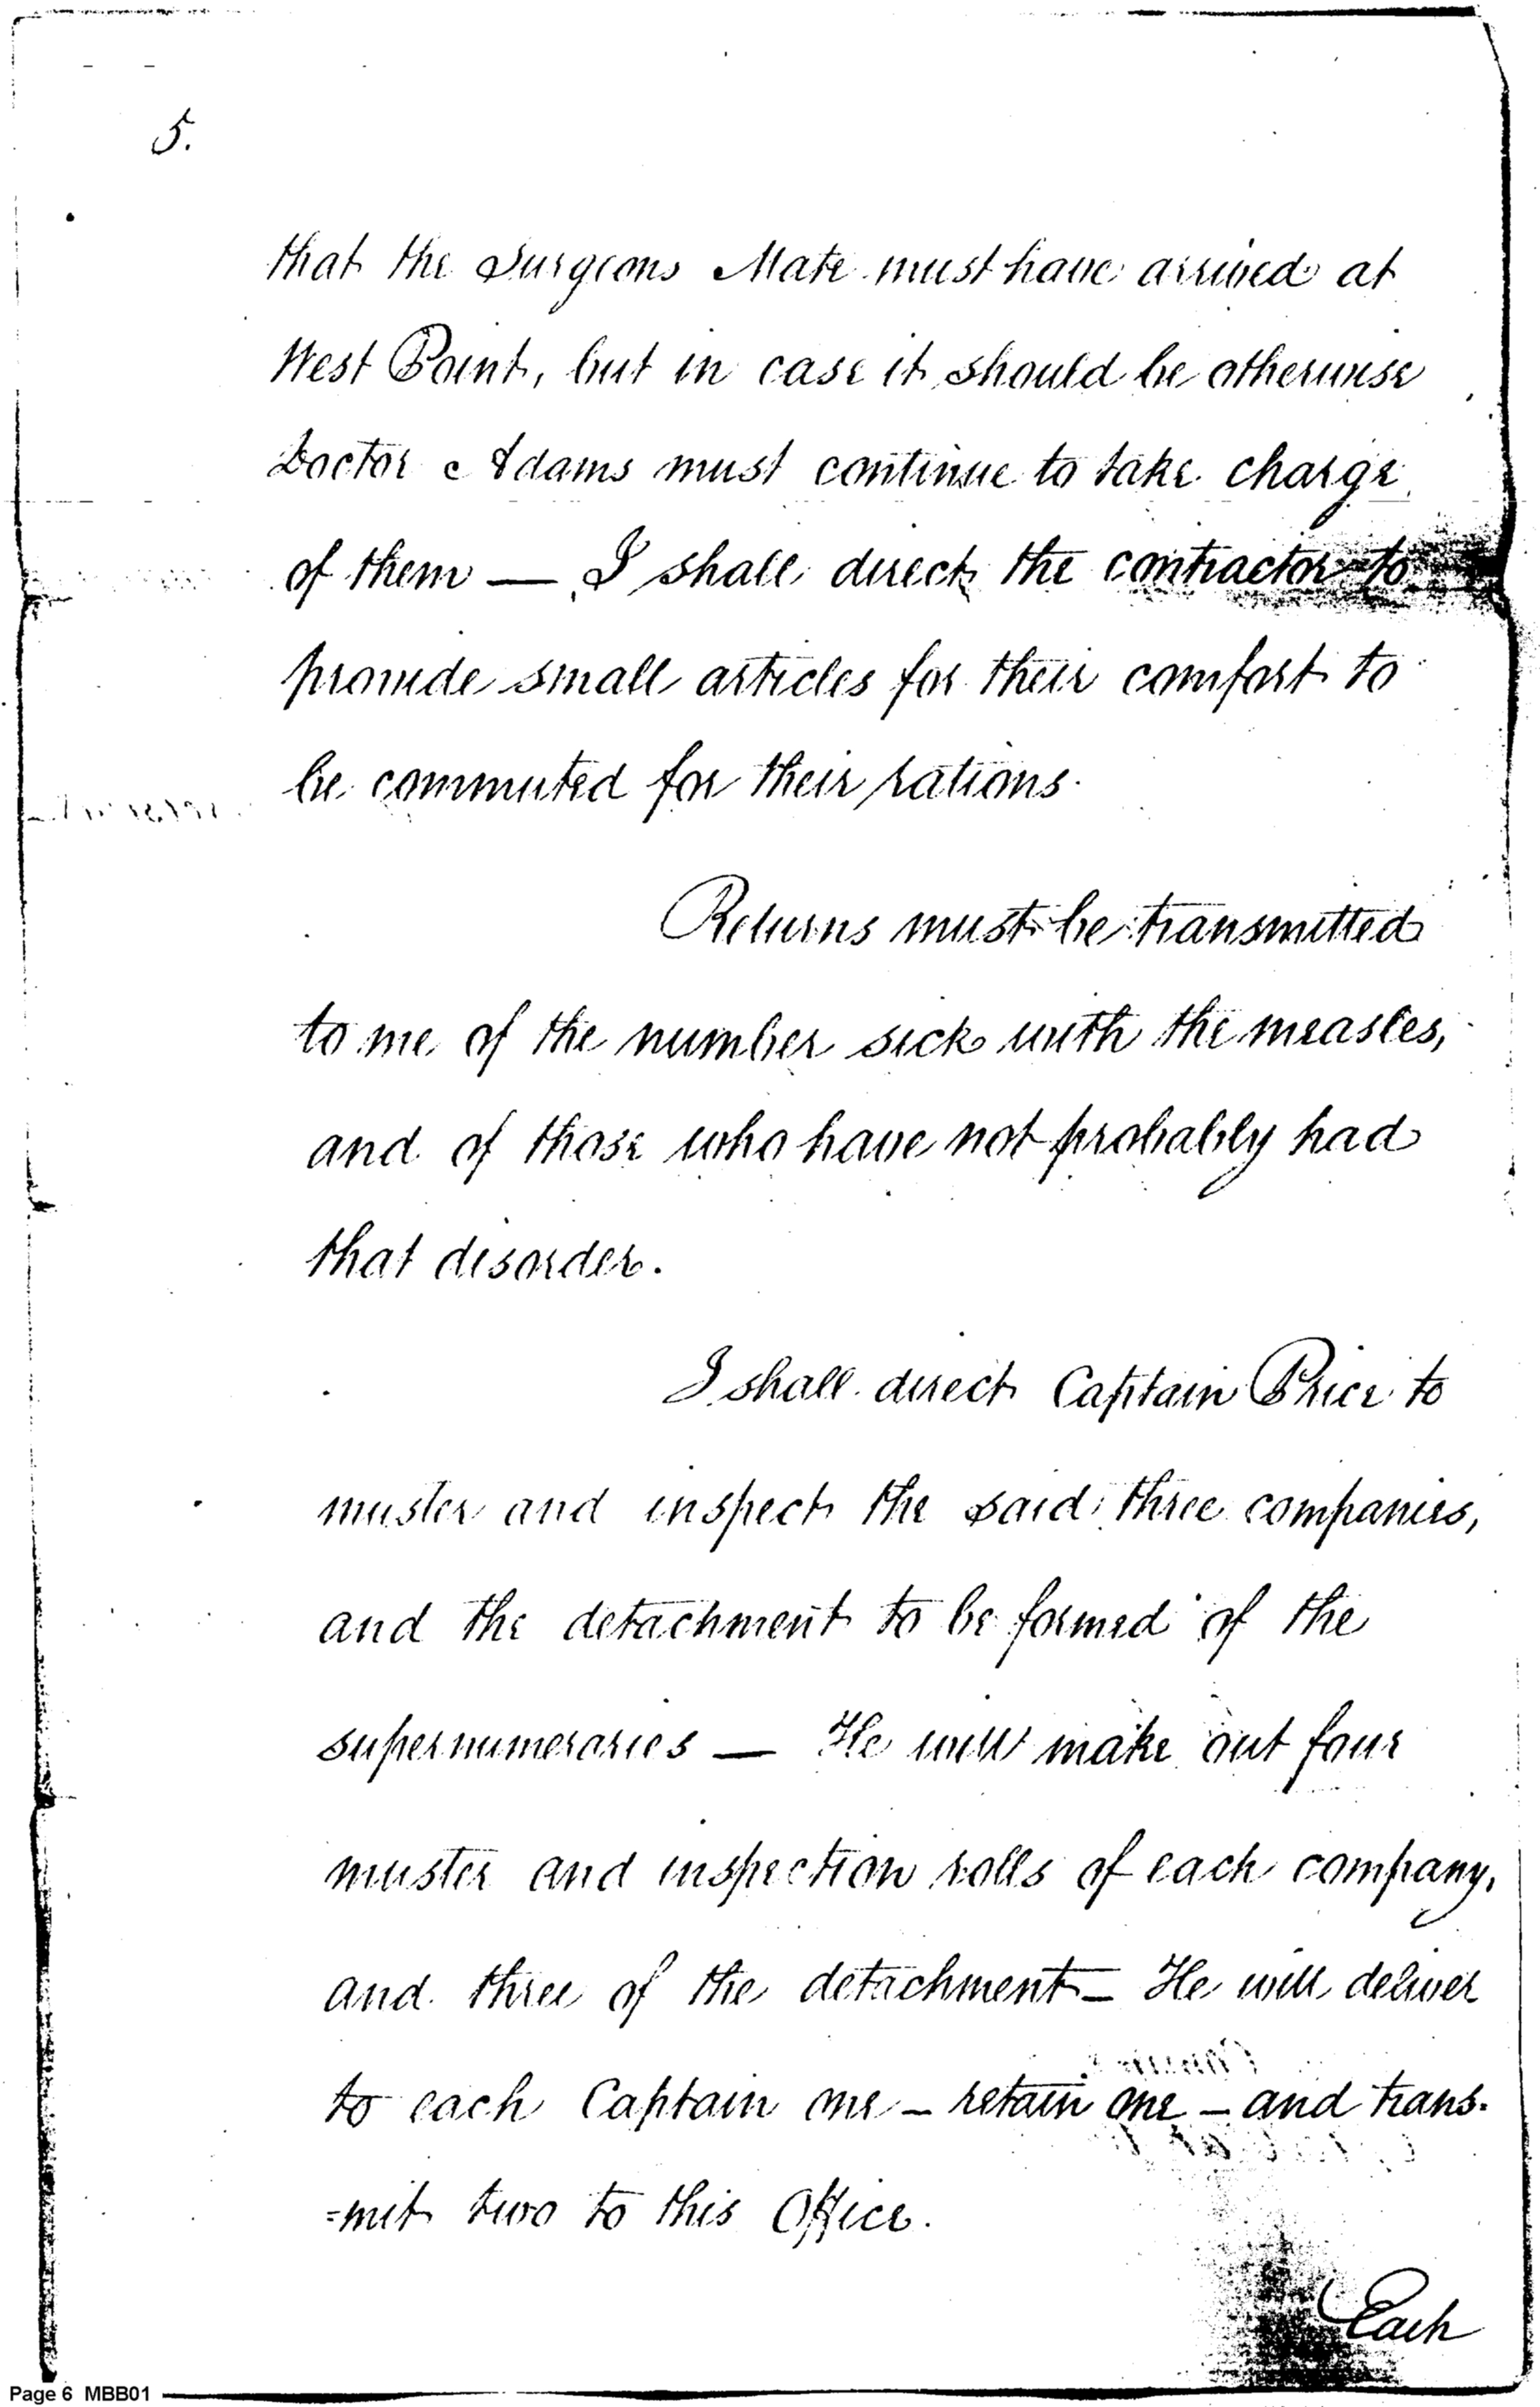 5.
that the Surgeons Mate must have arrived at
West Point, but in case it should be otherwise
Doctor Adams must continue to take charge
of them — I shall direct the contractor to
provide small articles for their comfort to
be commuted for their rations.
Returns must be transmitted
to me of the number sick with the measles,
and of those who have not probably had
that disorder.
I shall direct Captain Price to
muster and inspect the said three companies,
and the detachment to be formed of the
supernumeraries — He will make out four
muster and inspection rolls of each company,
and three of the detachment — He will deliver
to each Captain one — retain one — and trans-
=mit two to this Office.
Each
Page 6 MBB01